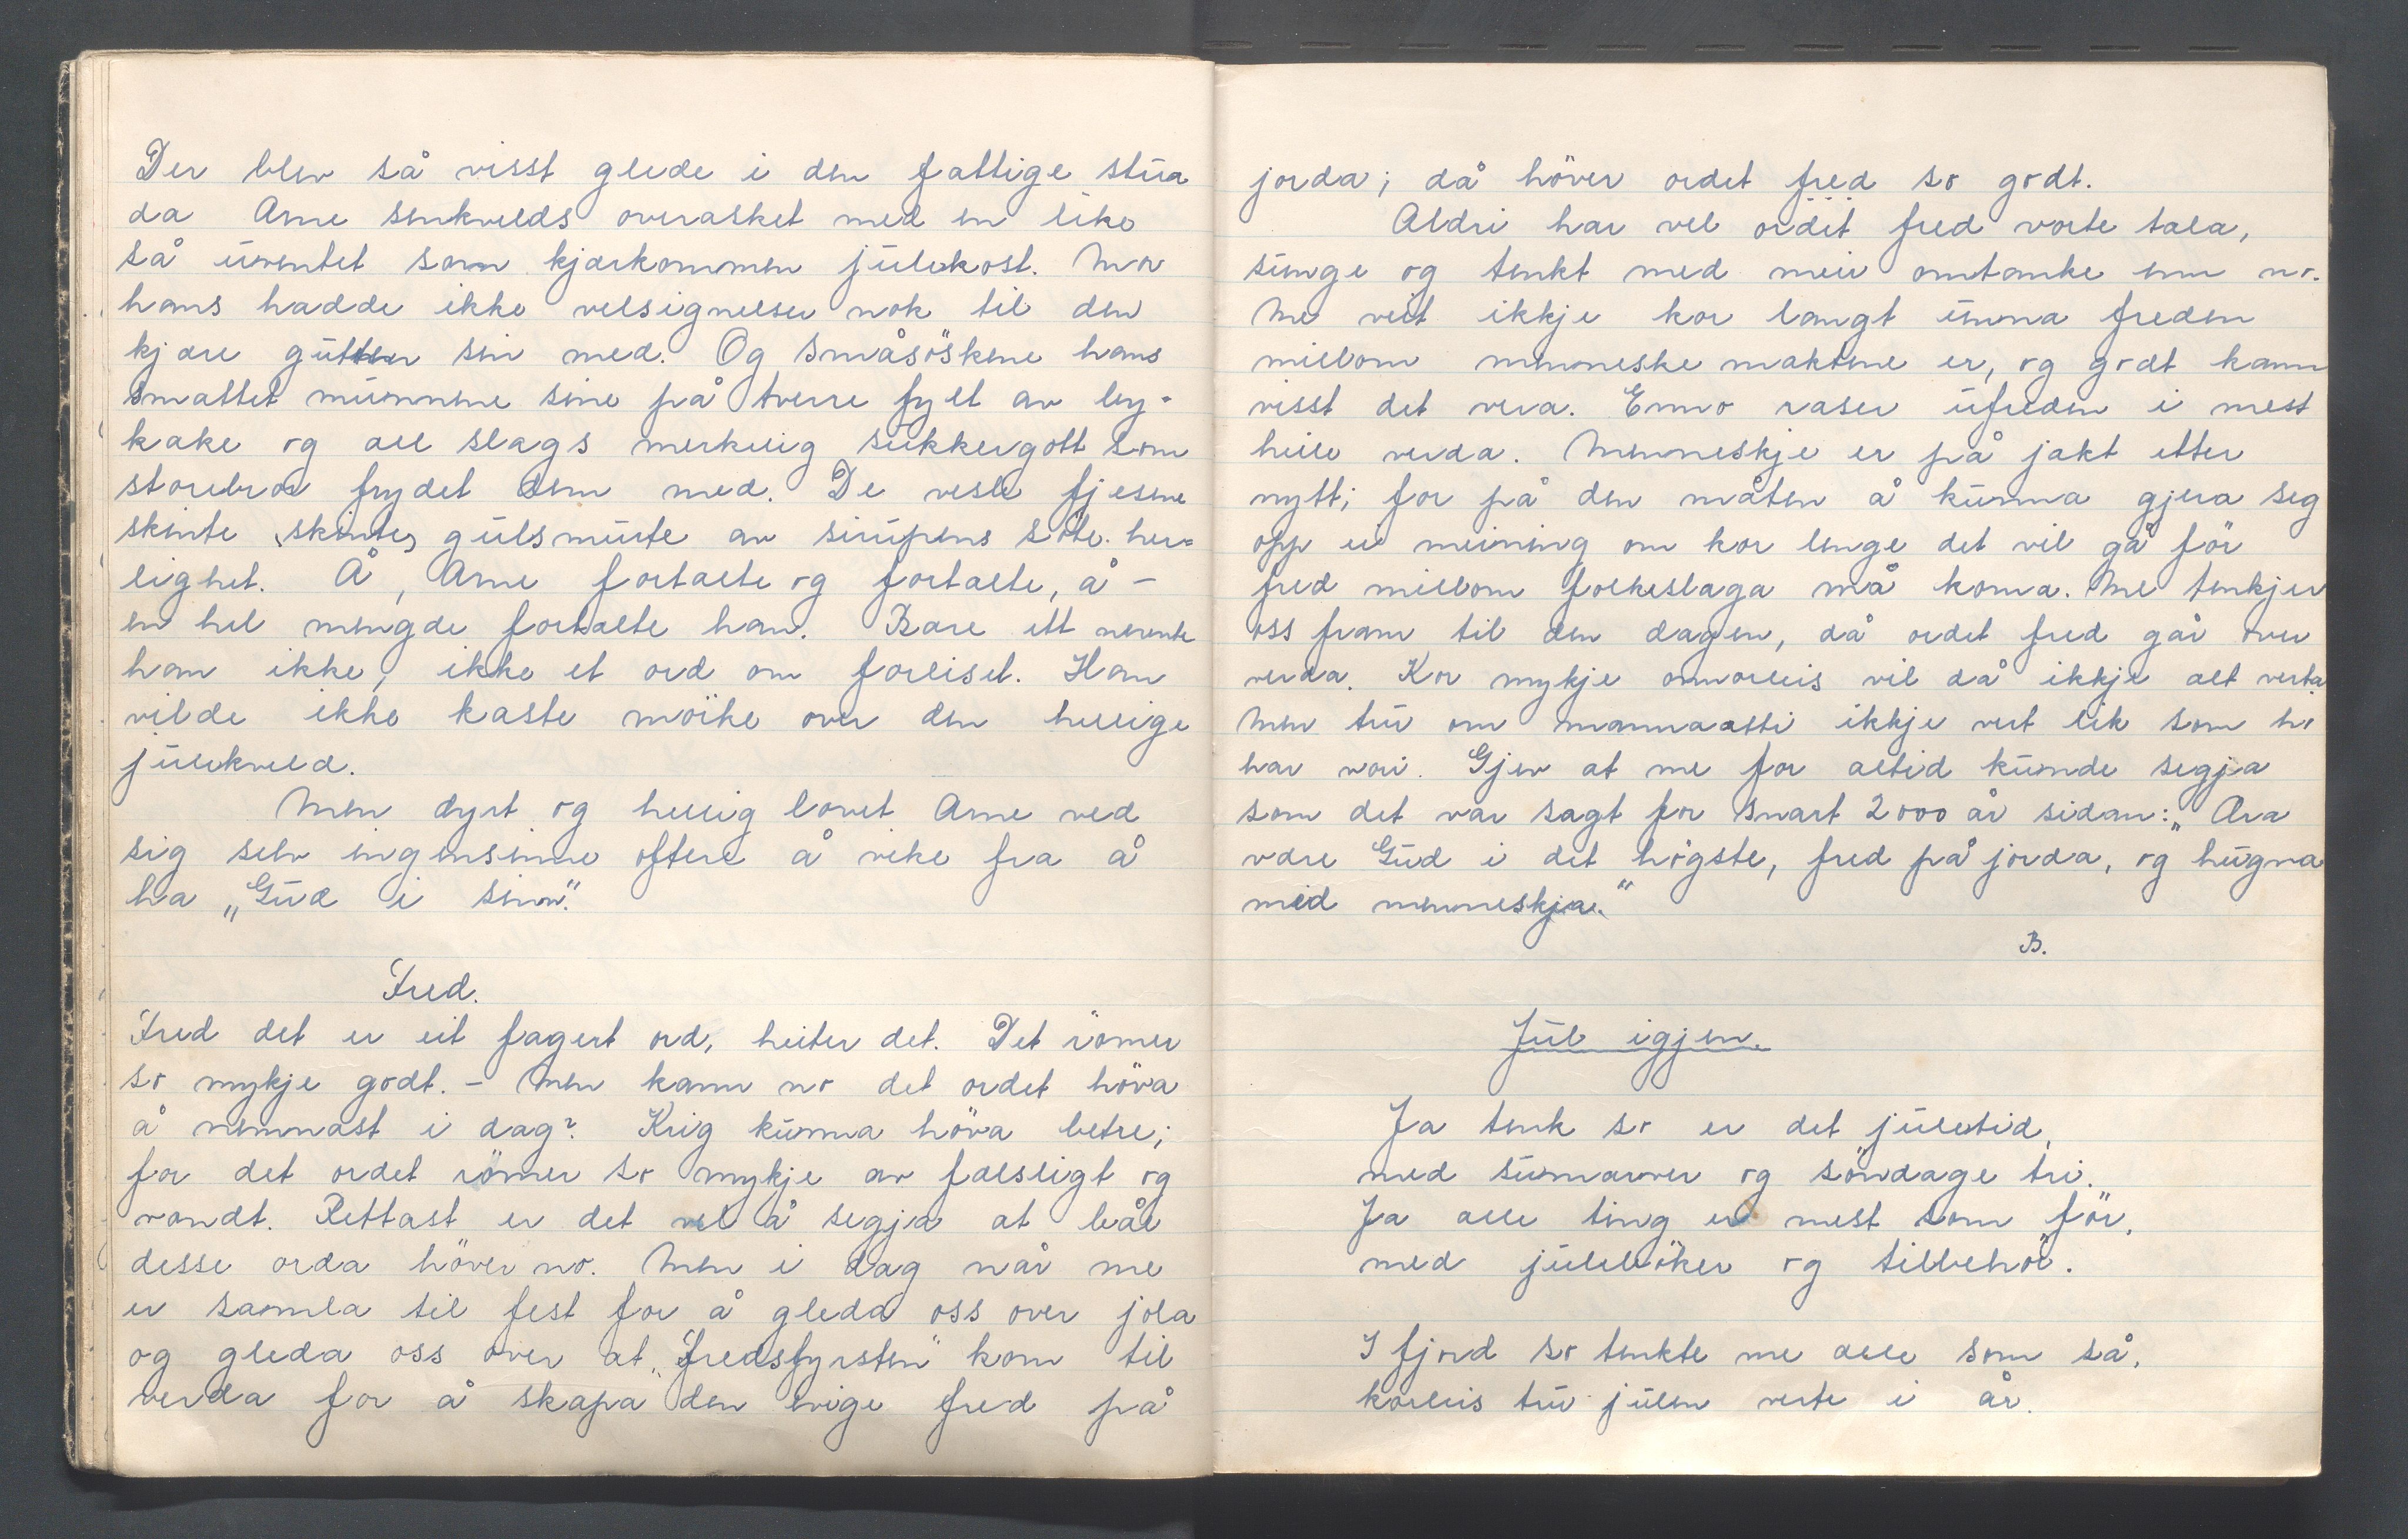 Der blev så visst glede i den fattige stua
da Arne senkvelds overasket med en like
så uventet som kjærkommen julekost. Mor
hans hadde ikke velsignelser nok til den
kjære gutten sin med. Og småsöskene hans
smattet munnene sine på tverre fylt av by-
kake og all slags merkelig sukkergott som
storebror frydet dem med. De vesle fjesene
skinte skinte gulsmurte av sirupens söte her-
lighet. Å, Arne fortalte og fortalte, å –
en hel mengde fortalte han. Bare ett nevnte
han ikke, ikke et ord om forliset. Han
vilde ikke kaste mörke over den hellige
julekveld.
Men dyrt og hellig lovet Arne ved
sig selv ingensinne oftere å vike fra å
ha „Gud i sinn".
Fred.
Fred det er eit fagert ord, heiter det. Det römer
so mykje godt. – Men kann no det ordet höva
å nemnast i dag? Krig kunna höva betre;
for det ordet römer so mykje av falsligt og
vondt. Rettast er det vel å segja at båe
desse orda höver no. Men i dag når me
er samla til fest for å gleda oss over jola
og gleda oss over at „Fredsfyrsten" kom til
verda for å skapa den evige fred på
jorda; då höver ordet fred so godt.
Aldri har vel ordet fred vorte tala,
sunge og tenkt med meir omtanke enn no.
Me veit ikkje kor langt unna freden
millom menneske maktene er, og godt kann
visst det vera. Enno raser ufreden i mest
heile verda. Menneskje er på jakt etter
nytt; for på den måten å kunna gjera seg
opp ei meining om kor lenge det vil gå för
fred millom folkeslaga må koma. Me tenkjer
oss fram til den dagen, då ordet fred går over
verda. Kor mykje onnorleis vil då ikkje alt verta.
Men tru om mannaætti ikkje vert lik som ho
har vori. Gjev at me for altid kunde segja
som det var sagt for snart 2000 år sidan: „Æra
være Gud i det högste, fred på jorda, og hugna
med menneskja."
B.
Jul igjen.
Ja tenk so er det juletid,
med sumarver og söndage tri.
Ja alle ting er mest som för,
med juleböker og tilbehör.
I fjord so tenkte me alle som så,
korleis tru julen verte i år.